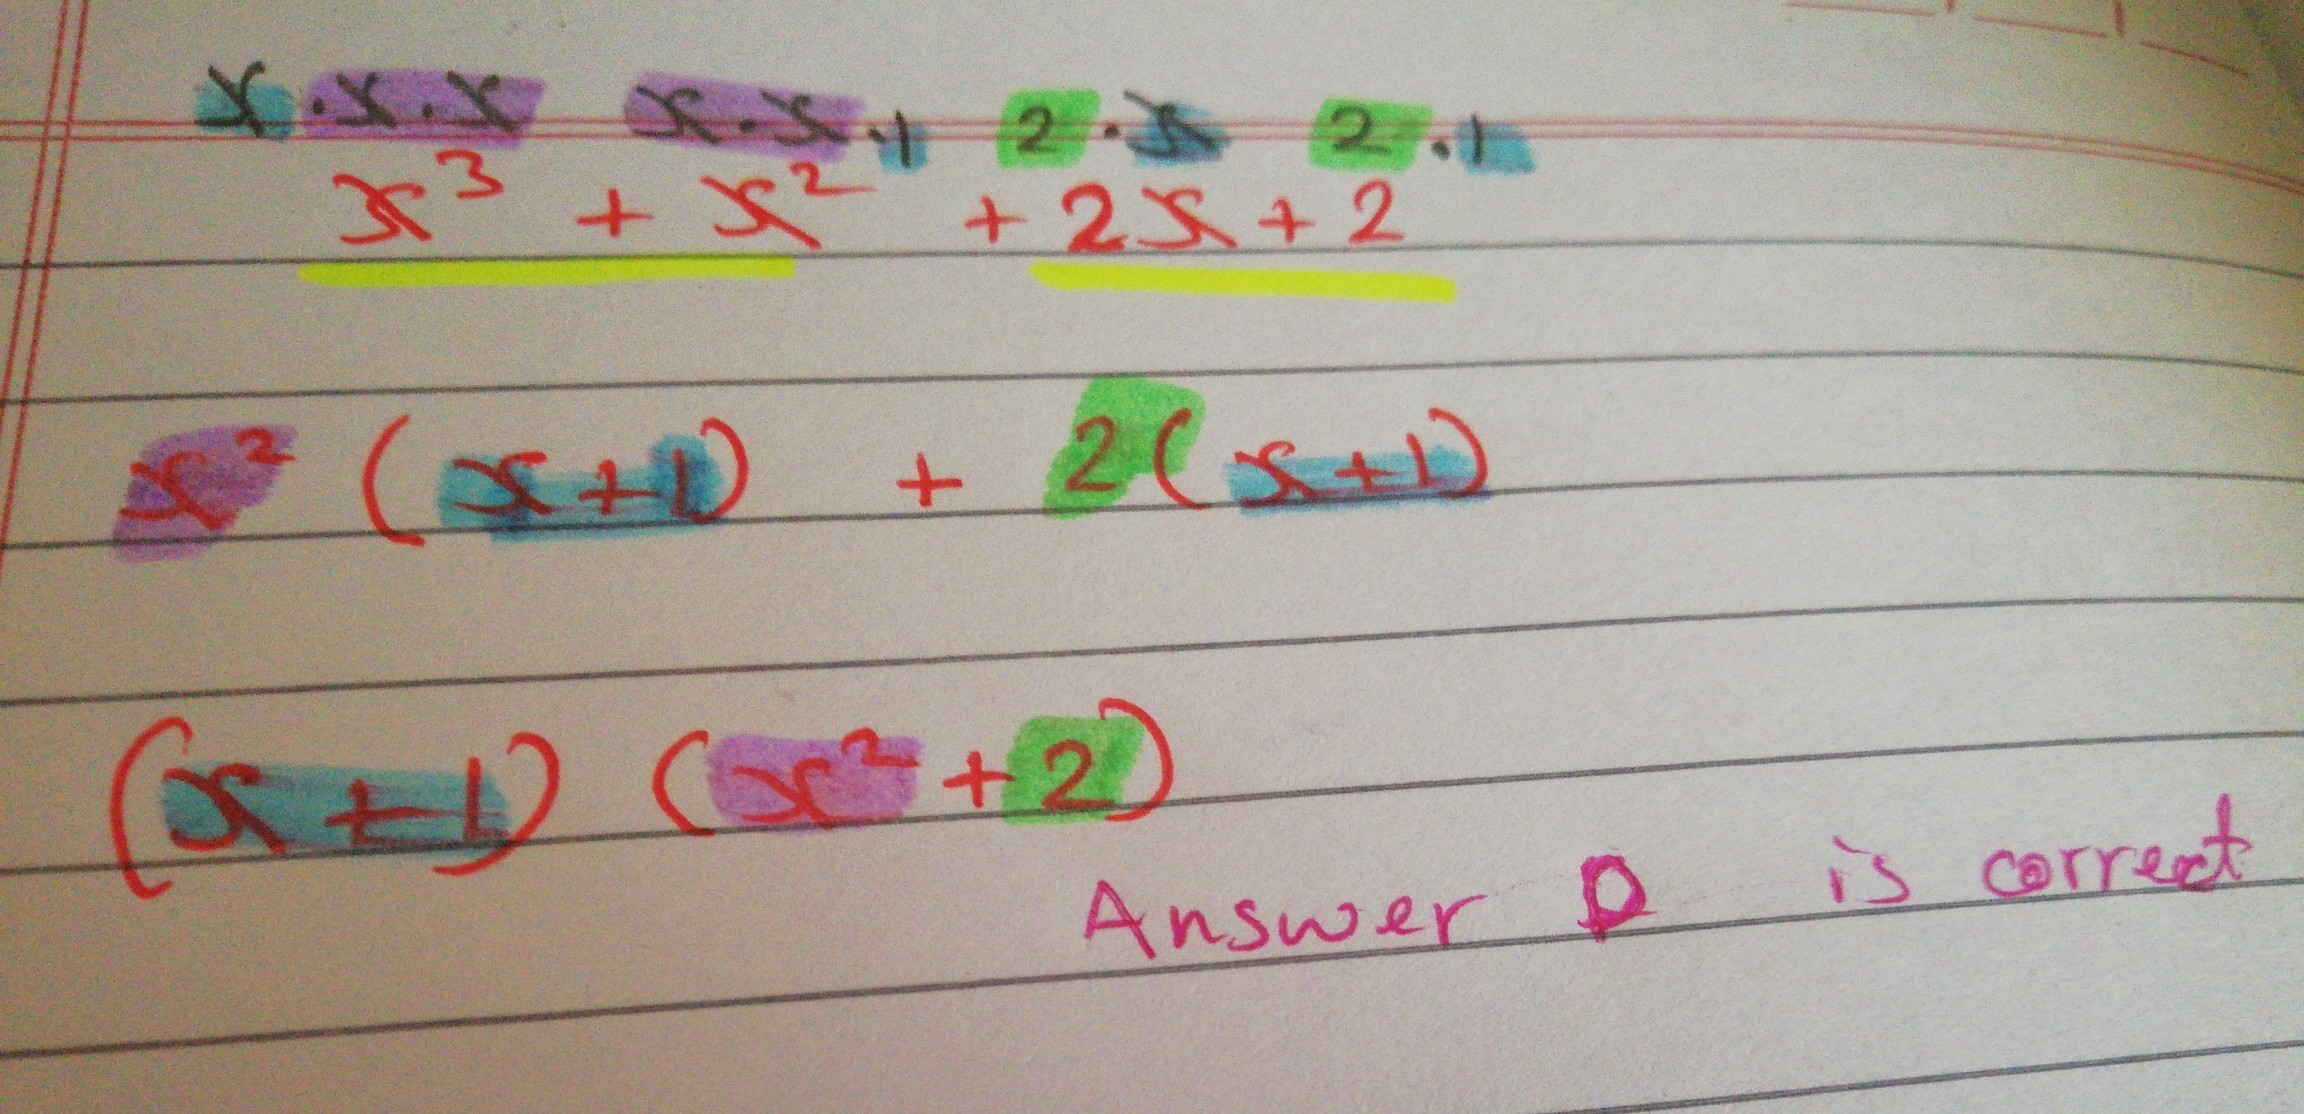 x·x·x x·x·1 2·x 2·1
x³ + x² + 2x + 2
x² (x+1) + 2(x+1)
(x+1) (x²+2)
Answer D is correct